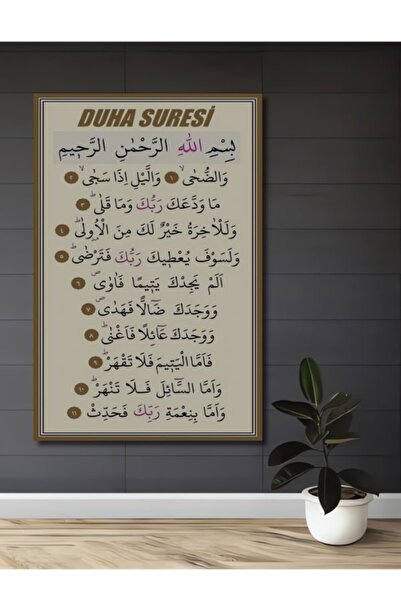 DUHA SURESİ
بِسْمِ اللهِ الرَّحْمٰنِ الرَّح۪يمِ
وَالضُّحٰىۙ ١ وَالَّيْلِ اِذَا سَجٰىۙ ٢
مَا وَدَّعَكَ رَبُّكَ وَمَا قَلٰىۜ ٣
وَلَلْاٰخِرَةُ خَيْرٌ لَكَ مِنَ الْاُو۫لٰىۜ ٤
وَلَسَوْفَ يُعْط۪يكَ رَبُّكَ فَتَرْضٰىۜ ٥
اَلَمْ يَجِدْكَ يَت۪يمًا فَاٰوٰىۖ ٦
وَوَجَدَكَ ضَٓالًّا فَهَدٰىۖ ٧
وَوَجَدَكَ عَٓائِلًا فَاَغْنٰىۜ ٨
فَاَمَّا الْيَت۪يمَ فَلَا تَقْهَرْۜ ٩
وَاَمَّا السَّٓائِلَ فَلَا تَنْهَرْۜ ١٠
وَاَمَّا بِنِعْمَةِ رَبِّكَ فَحَدِّثْ ١١